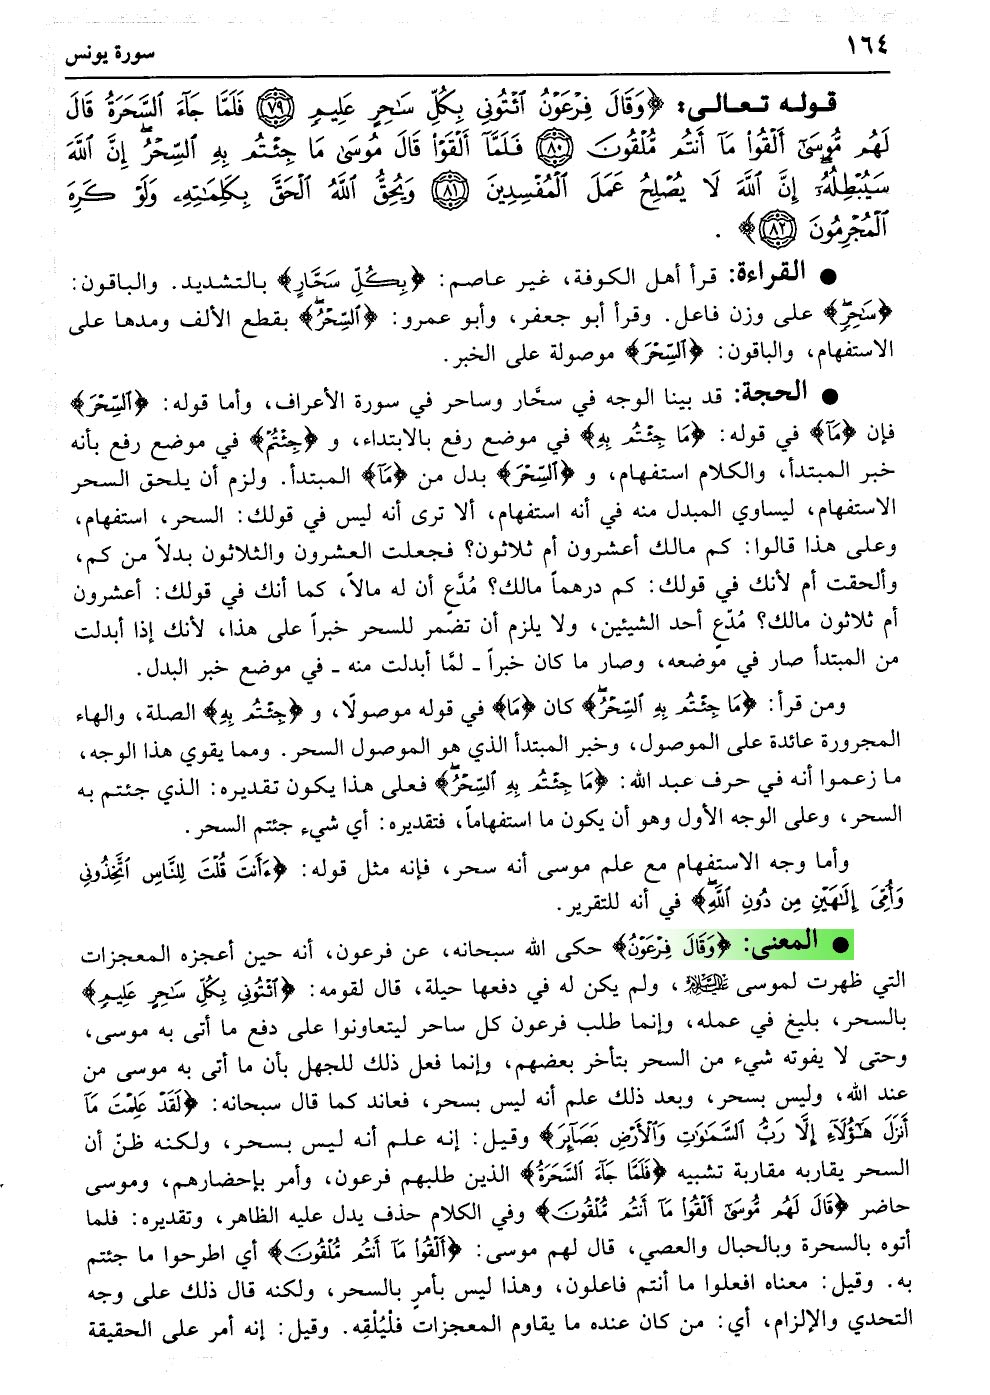 ١٦٤
سورة يونس
قوله تعالى: ﴿وَقَالَ فِرْعَوْنُ ائْتُونِي بِكُلِّ سَٰحِرٍ عَلِيمٍ ٧٩ فَلَمَّا جَآءَ ٱلسَّحَرَةُ قَالَ
لَهُم مُّوسَىٰٓ أَلْقُوا۟ مَآ أَنتُم مُّلْقُونَ ٨٠ فَلَمَّآ أَلْقَوْا۟ قَالَ مُوسَىٰ مَا جِئْتُم بِهِ ٱلسِّحْرُۖ إِنَّ ٱللَّهَ
سَيُبْطِلُهُۥٓۖ إِنَّ ٱللَّهَ لَا يُصْلِحُ عَمَلَ ٱلْمُفْسِدِينَ ٨١ وَيُحِقُّ ٱللَّهُ ٱلْحَقَّ بِكَلِمَٰتِهِۦ وَلَوْ كَرِهَ
ٱلْمُجْرِمُونَ ٨٢﴾ .
● القراءة: قرأ أهل الكوفة، غير عاصم: ﴿بِكُلِّ سَحَّارٍ﴾ بالتشديد. والباقون:
﴿سَٰحِرٍۖ﴾ على وزن فاعل. وقرأ أبو جعفر، وأبو عمرو: ﴿ٱلسِّحْرُۖ﴾ بقطع الألف ومدها على
الاستفهام، والباقون: ﴿ٱلسِّحْرَ﴾ موصولة على الخبر.
● الحجة: قد بينا الوجه في سحَّار وساحر في سورة الأعراف، وأما قوله: ﴿ٱلسِّحْرَ﴾
فإن ﴿مَآ﴾ في قوله: ﴿مَا جِئْتُم بِهِ﴾ في موضع رفع بالابتداء، و ﴿جِئْتُمْ﴾ في موضع رفع بأنه
خبر المبتدأ، والكلام استفهام، و ﴿ٱلسِّحْرَ﴾ بدل من ﴿مَآ﴾ المبتدأ. ولزم أن يلحق السحر
الاستفهام، ليساوي المبدل منه في أنه استفهام، ألا ترى أنه ليس في قولك: السحر، استفهام،
وعلى هذا قالوا: كم مالك أعشرون أم ثلاثون؟ فجعلت العشرون والثلاثون بدلاً من كم،
وألحقت أم لأنك في قولك: كم درهماً مالك؟ مُدَّعٍ أن له مالاً، كما أنك في قولك: أعشرون
أم ثلاثون مالك؟ مُدّعٍ أحد الشيئين، ولا يلزم أن تضمر للسحر خبراً على هذا، لأنك إذا أبدلت
من المبتدأ صار في موضعه، وصار ما كان خبراً ـ لمَّا أبدلت منه ـ في موضع خبر البدل.
ومن قرأ: ﴿مَا جِئْتُم بِهِ ٱلسِّحْرُۖ﴾ كان ﴿مَا﴾ في قوله موصولًا، و ﴿جِئْتُم بِهِ﴾ الصلة، والهاء
المجرورة عائدة على الموصول، وخبر المبتدأ الذي هو الموصول السحر. ومما يقوي هذا الوجه،
ما زعموا أنه في حرف عبد الله: ﴿مَا جِئْتُم بِهِ ٱلسِّحْرُۖ﴾ فعلى هذا يكون تقديره: الذي جئتم به
السحر، وعلى الوجه الأول وهو أن يكون ما استفهاماً، فتقديره: أي شيء جئتم السحر.
وأما وجه الاستفهام مع علم موسى أنه سحر، فإنه مثل قوله: ﴿ءَأَنتَ قُلْتَ لِلنَّاسِ ٱتَّخِذُونِي
وَأُمِّيَ إِلَٰهَيْنِ مِن دُونِ ٱللَّهِۖ﴾ في أنه للتقرير.
● المعنى: ﴿وَقَالَ فِرْعَوْنُ﴾ حكى الله سبحانه، عن فرعون، أنه حين أعجزه المعجزات
التي ظهرت لموسى عليه السلام، ولم يكن له في دفعها حيلة، قال لقومه: ﴿ائْتُونِي بِكُلِّ سَٰحِرٍ عَلِيمٍ﴾
بالسحر، بليغ في عمله، وإنما طلب فرعون كل ساحر ليتعاونوا على دفع ما أتى به موسى،
وحتى لا يفوته شيء من السحر بتأخر بعضهم، وإنما فعل ذلك للجهل بأن ما أتى به موسى من
عند الله، وليس بسحر، وبعد ذلك علم أنه ليس بسحر، فعاند كما قال سبحانه: ﴿لَقَدْ عَلِمْتَ مَآ
أَنزَلَ هَٰٓؤُلَآءِ إِلَّا رَبُّ ٱلسَّمَٰوَٰتِ وَٱلْأَرْضِ بَصَآئِرَ﴾ وقيل: إنه علم أنه ليس بسحر، ولكنه ظنّ أن
السحر يقاربه مقاربة تشبيه ﴿فَلَمَّا جَآءَ ٱلسَّحَرَةُ﴾ الذين طلبهم فرعون، وأمر بإحضارهم، وموسى
حاضر ﴿قَالَ لَهُم مُّوسَىٰٓ أَلْقُوا۟ مَآ أَنتُم مُّلْقُونَ﴾ وفي الكلام حذف يدل عليه الظاهر، وتقديره: فلما
أتوه بالسحرة وبالحبال والعصي، قال لهم موسى: ﴿أَلْقُوا۟ مَآ أَنتُم مُّلْقُونَ﴾ أي اطرحوا ما جئتم
به. وقيل: معناه افعلوا ما أنتم فاعلون، وهذا ليس بأمرٍ بالسحر، ولكنه قال ذلك على وجه
التحدي والإلزام، أي: من كان عنده ما يقاوم المعجزات فلْيُلْقِه. وقيل: إنه أمر على الحقيقة